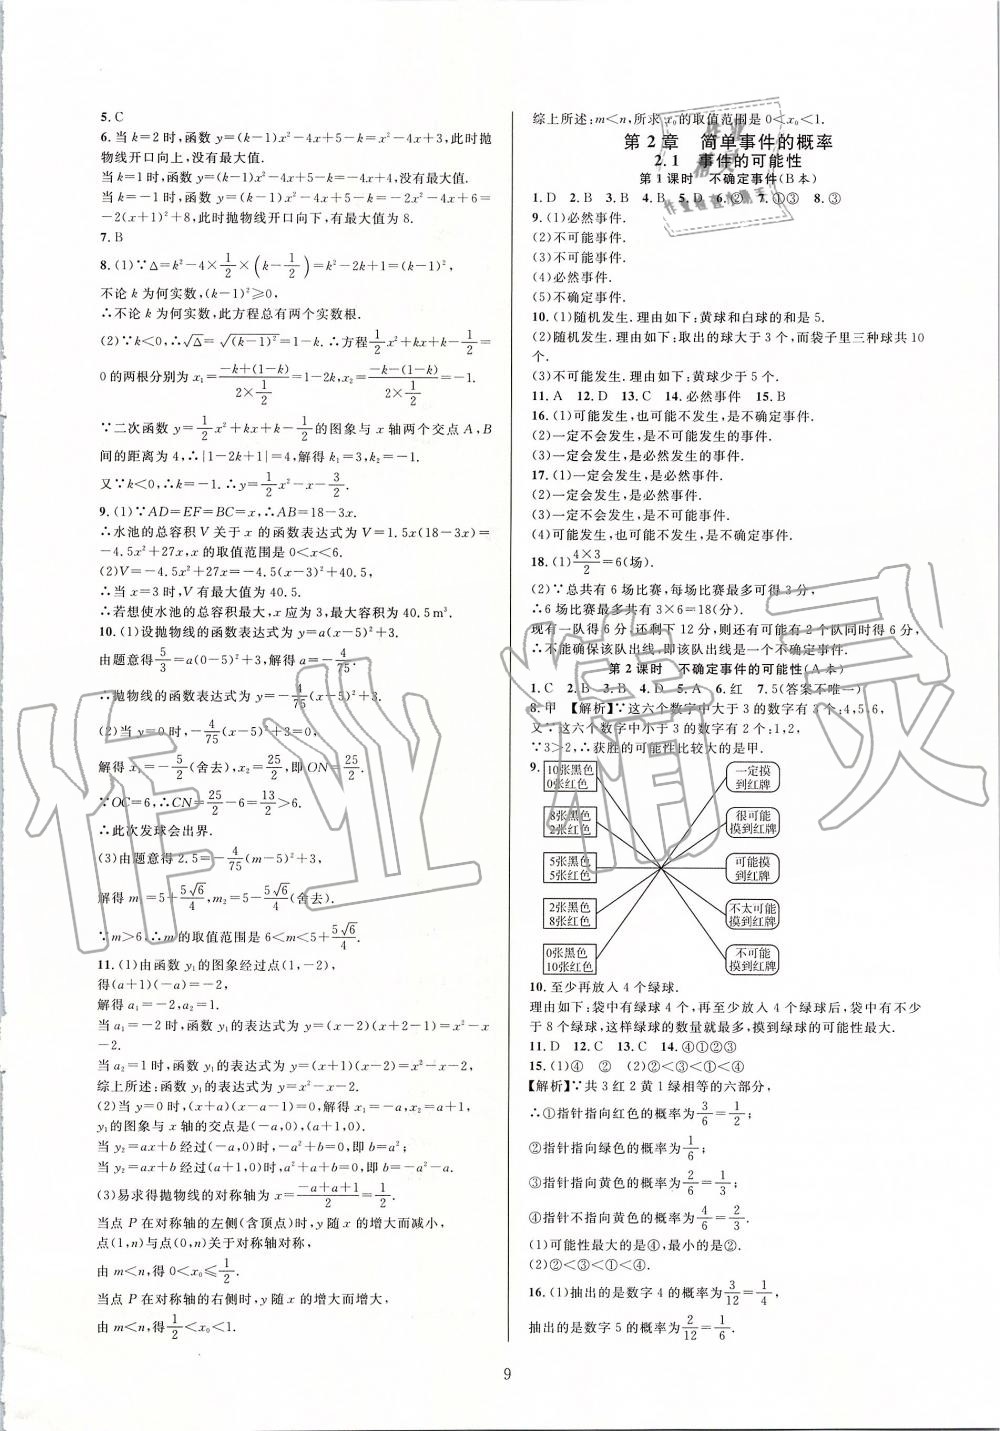 5. C
6. 当 k=2 时,函数 y=(k-1)x²-4x+5-k=x²-4x+3,此时抛
物线开口向上,没有最大值.
当 k=1 时,函数 y=(k-1)x²-4x+5-k=-4x+4,没有最大值.
当 k=-1 时,函数 y=(k-1)x²-4x+5-k=-2x²-4x+6=
-2(x+1)²+8,此时抛物线开口向下,有最大值为 8.
7. B
8. (1)∵Δ=k²-4×1/2×(k-1/2)=k²-2k+1=(k-1)²,
不论 k 为何实数,(k-1)²≥0,
∴不论 k 为何实数,此方程总有两个实数根.
(2)∵k<0,∴√Δ=√(k-1)²=1-k.∴方程1/2x²+kx+k-1/2=
0 的两根分别为 x₁=(-k+(1-k))/(2×1/2)=1-2k,x₂=(-k-(1-k))/(2×1/2)=-1.
∵二次函数 y=1/2x²+kx+k-1/2的图象与 x 轴两个交点 A,B
间的距离为 4,∴|1-2k+1|=4,解得 k₁=3,k₂=-1.
又∵k<0,∴k=-1.∴y=1/2x²-x-3/2.
9. (1)∵AD=EF=BC=x,∴AB=18-3x.
∴水池的总容积 V 关于 x 的函数表达式为 V=1.5x(18-3x)=
-4.5x²+27x,x 的取值范围是 0<x<6.
(2)V=-4.5x²+27x=-4.5(x-3)²+40.5,
∴当 x=3 时,V 有最大值为 40.5.
∴若想使水池的总容积最大,x 应为 3,最大容积为 40.5 m³.
10. (1)设抛物线的函数表达式为 y=a(x-5)²+3.
由题意得5/3=a(0-5)²+3,解得 a=-4/75.
∴抛物线的函数表达式为 y=-4/75(x-5)²+3.
(2)当 y=0 时,-4/75(x-5)²+3=0,
解得 x₁=-5/2(舍去),x₂=25/2,即 ON=25/2.
∵OC=6,∴CN=25/2-6=13/2>6.
∴此次发球会出界.
(3)由题意得 2.5=-4/75(m-5)²+3,
解得 m₁=5+5√6/4,m₂=5-5√6/4(舍去).
∵m>6,∴m 的取值范围是 6<m<5+5√6/4.
11. (1)由函数 y₁的图象经过点(1,-2),
得(a+1)(-a)=-2,
解得 a₁=-2,a₂=1.
当 a₁=-2 时,函数 y₁的表达式为 y=(x-2)(x+2-1)=x²-x
-2.
当 a₂=1 时,函数 y₁的表达式为 y=(x+1)(x-2)=x²-x-2.
综上所述:函数 y₁的表达式为 y=x²-x-2.
(2)当 y=0 时,(x+a)(x-a-1)=0,解得 x₁=-a,x₂=a+1,
y₁的图象与 x 轴的交点是(-a,0),(a+1,0).
当 y₂=ax+b 经过(-a,0)时,-a²+b=0,即 b=a².
当 y₂=ax+b 经过(a+1,0)时,a²+a+b=0,即 b=-a²-a.
(3)易求得抛物线的对称轴为 x=(-a+a+1)/2=1/2.
当点 P 在对称轴的左侧(含顶点)时,y 随 x 的增大而减小,
点(1,n)与点(0,n)关于对称轴对称,
由 m<n,得 0<x₀≤1/2.
当点 P 在对称轴的右侧时,y 随 x 的增大而增大,
由 m<n,得1/2<x₀<1.
综上所述:m<n,所求 x₀的取值范围是 0<x₀<1.
第 2 章 简单事件的概率
2.1 事件的可能性
第 1 课时 不确定事件(B 本)
1. D 2. B 3. B 4. B 5. D 6. ② 7. ①③ 8. ③
9. (1)必然事件.
(2)不可能事件.
(3)不可能事件.
(4)必然事件.
(5)不确定事件.
10. (1)随机发生. 理由如下:黄球和白球的和是 5.
(2)随机发生. 理由如下:取出的球大于 3 个,而袋子里三种球共 10
个.
(3)不可能发生. 理由如下:黄球少于 5 个.
11. A 12. D 13. C 14. 必然事件 15. B
16. (1)可能发生,也可能不发生,是不确定事件.
(2)一定不会发生,是不可能发生的事件.
(3)一定会发生,是必然发生的事件.
17. (1)一定会发生,是必然事件.
(2)一定会发生,是必然事件.
(3)一定不会发生,是不可能事件.
(4)可能发生,也可能不发生,是不确定事件.
18. (1)4×3/2=6(场).
(2)∵总共有 6 场比赛,每场比赛最多可得 3 分,
∴6 场比赛最多共有 3×6=18(分).
现有一队得 6 分,还剩下 12 分,则还有可能有 2 个队同时得 6 分,
∴不能确保该队出线,即该队出线是一个不确定事件.
第 2 课时 不确定事件的可能性(A 本)
1. C 2. B 3. B 4. D 5. A 6. 红 7. 5(答案不唯一)
8. 甲 【解析】∵这六个数字中大于 3 的数字有 3 个:4,5,6,
又∵这六个数字中小于 3 的数字有 2 个:1,2,
∵3>2,∴获胜的可能性比较大的是甲.
9.
10张黑色
0张红色
一定摸
到红牌
8张黑色
2张红色
很可能
摸到红牌
5张黑色
5张红色
可能摸
到红牌
2张黑色
8张红色
不太可能
摸到红牌
0张黑色
10张红色
不可能
摸到红牌
10. 至少再放入 4 个绿球.
理由如下:袋中有绿球 4 个,再至少放入 4 个绿球后,袋中有不少
于 8 个绿球,这样绿球的数量就最多,摸到绿球的可能性最大.
11. D 12. C 13. C 14. ④①②③
15. (1)④ ② (2)②<③<①<④
【解析】∵共 3 红 2 黄 1 绿相等的六部分,
∴①指针指向红色的概率为3/6=1/2;
②指针指向绿色的概率为1/6;
③指针指向黄色的概率为2/6=1/3;
④指针不指向黄色的概率为4/6=2/3.
(1)可能性最大的是④,最小的是②.
(2)②<③<①<④.
16. (1)抽出的是数字 4 的概率为3/12=1/4,
抽出的是数字 5 的概率为2/12=1/6.
9
作业精灵